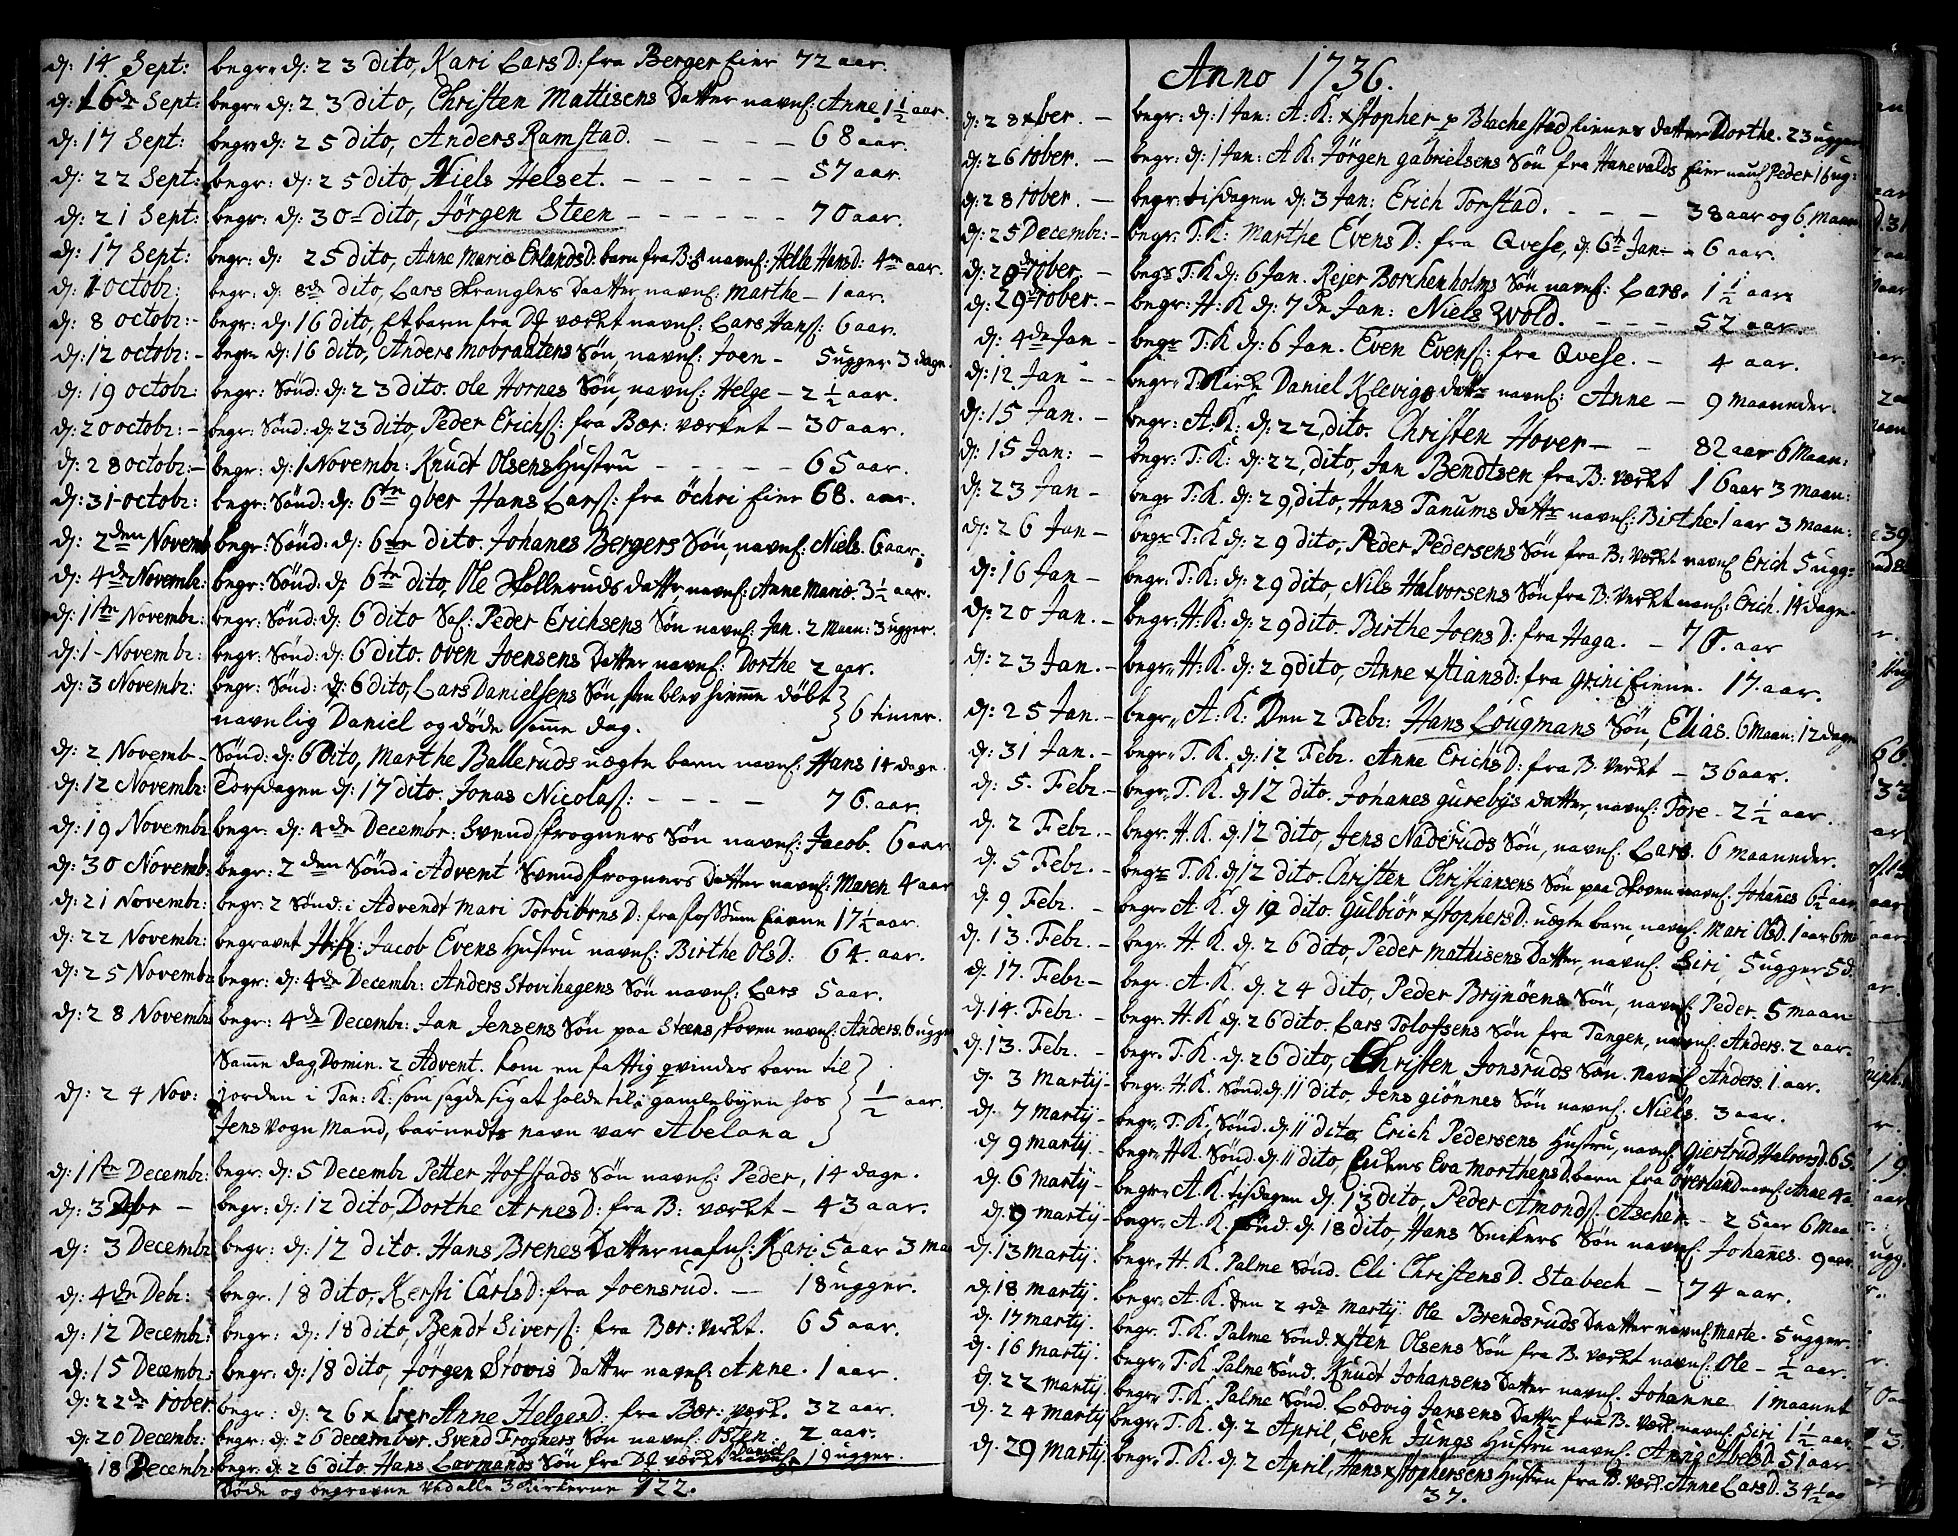 d: 14 Sept: begr: d: 23 dito, Kari LarsD: fra Berger Eier 72 aar.
d: 16de Sept: begr: d: 23 dito, Christen Mattisens Datter navnl: Anne. 1 1/2 aar.
d: 17 Sept: begr: d: 25 dito, Anders Ramstad. - - - - - 68 aar.
d: 22 Sept: begr: d: 25 dito, Niels Helset. - - - - - 57 aar.
d: 21 Sept: begr: d: 30 dito, Jörgen Steen - - - - - - 70 aar.
d: 17 Sept: begr: d: 25 dito, Anne Mariæ ErlandsD: barn fra B: navnl: Helle HansD: 4 aar.
d: 1 octobr: begr: d: 8de dito, Lars Skrangles Daatter navnl: Marthe - 1 aar.
d: 8 octobr: - begr: d: 16 dito, Et barn fra værket navnl: Lars Hansß: 6 aar.
d: 12 octobr: - begr: d: 16 dito, Anders Mobraatens Søn, navnl: Joen - 5 ugger 3 dage.
d: 19 octobr: begr: Sønd: d: 23 dito. Ole Hornes Søn, navnl: Helge - 2 1/2 aar.
d: 20 octobr: - begr: Sønd: d: 23 dito, Peder Erichß: fra Bær: værket - 30 aar.
d: 28 octobr: - begr: d: 1 Novembr: Knudt Olsens Hustru - - - - - 65 aar.
d: 31 octobr: begr: Sønd: d: 6te 9ber Hans Larß: fra Öchri Eier 68. aar.
d: 2den Novemb begr: Sønd: d: 6te dito. Johanes Bergers Søn, navnl: Niels. 6 aar.
d: 4de Novembr: begr: Sønd: d: 6te dito, Ole Skolleruds datter navnl: Anne Mariæ. 3 1/2 aar.
d: 1ste Novembr: begr: Sønd: d: 6 dito Sal: Peder Erichsens Søn navnl: Jan. 2 Maan: 3 ugger.
d: 1 Novembr: begr: Sønd: d: 6 dito. Oven Joensens Datter navnl: Dorthe 2 aar.
d: 3 Novembr: begr: Sønd: d: 6 dito, Lars Danielsens Søn, som blev hiemme døbt
navnlig Daniel og døde samme dag. 6 timer.
d: 2 Novemb - Sønd: d: 6 dito, Marthe Balleruds uægte barn navnl: Hans 14 dage.
d: 12 Novembr: Torsdagen d: 17 dito. Jonas Nicolaß: - - - - 76. aar.
d: 19 Novembr begr: d: 4de Decembr: Svend frogners Søn navnl: Jacob. 6 aar
d: 30 Novemb: begr: 2den Sønd i Advent Svend frogners Datter navnl: Maren 4 aar
d: 21 Novembr: begr: 2 Sønd: i Advendt Mari TorbiörnsD: fra fossum Eierne 17 1/2 aar.
d: 22 Novembr: begravet Jacob Evens Hustru navnl: Birthe OlsD: 64. aar.
d: 25 Novembr begr: d: 4de Decembr: Anders Stovihagens Søn navnl: Lars 5 aar.
d: 28 Novembr begr: 4de Decembr: Jan Jensens Søn paa Steens skoven navnl: Anders. 6 ugger
Samme dag Domin. 2 Advent. kom en fattig qvindes barn til
d: 24 Nov: jorden i Tan: K: som sagde sig at holde til i gamlebyen hos 1/2 aar.
Jens Vogn Mand, barnedts navn var Abelana
d: 1ste Decembr: begr: d: 5 Decembr Petter Hofstads Søn navnl: Peder, 14 dage.
d: 3 Dbr - begr: d: 12 dito, Dorthe ArnesD: fra B: værket - 43 aar.
d: 3 Decembr begr: d: 12 dito. Hans Brenes Datter nafnl: Kari 5 aar 3 maa
d: 4de Debr: begr. 18 dito, Kersti CarlsD: fra Joensrud. - 18 ugger.
d: 12 Decembr: begr: d: 18 dito, Bendt Siverß: fra Bær: verket. 65 aar.
d: 15 Decembr: begr: d: 18 dito, Jörgen Stovis Datter navnl: Anne. 1 aar.
d: 22de 10ber begr: d: 26 xber Anne HelgesD: fra Bær: værk. 32 aar.
d: 20 Decembr: begr: d: 26 december. Svend Frogners Søn navnl: Osten: 2 aar.
d: 18 Decembr: begr. d: 26 dito Hans Lovmands Søn fra værket navnl. Daniel 19 ugger.
Døde og begravne ved alle 3 Kirkerne 122.
Anno 1736.
d: 28 xber. - begr: d: 1 Jan: A: K: xstopher Blachestad Eiernes datter Dorthe. 23 ugger
d: 26 10ber. - begr: d: 1 Jan: A K: Jörgen gabrielsens Søn fra Hanevalds Eier navnl Peder 16 ug:
d: 28 10ber. - begr: tisdagen d: 3 Jan: Erich Torstad. - - - 38 aar og 6 Maan
d: 25 Decembr: - begr: T: K: Marthe EvensD: fra Qvese, d: 6te Jan: - 6 aar.
d: 20 10ber. - begr T. K d: 6 Jan. Rejer Borchenholms Søn navnl: Lars. 1 1/2 aar
d: 29 10ber. - begr: H. K d: 7de Jan: Niels Wold. - - - - 52 aar.
d: 4de Jan - begr T: K d: 6 Jan. Even Evenß: fra Qvese. - 4 aar.
d: 12 Jan - - begr: T. Kirk Daniel Klevigs datter navnl: Anne - 9 maaneder.
d: 15 Jan. - begr: A: K: d: 22, dito. Christen Hover - - 82 aar 6 Maan:
d: 15 Jan: - begr: T: K: d: 22, dito, Jan Bendtsen fra B: værket 16 aar 3 maan:
d: 23 Jan - begr T: K. d: 29, dito, Hans Tanums dattr navnl: Birthe 1 aar 3 maan:
d: 26 Jan - begr T: K d: 29 dito, Peder Pedersens Søn fra B: værket navnl Erich 5 ugg:
d: 16 Jan - begr: T: K: d: 29 dito, Nils Halvorsens Søn fra B: værket navnl: Erich. 14 dage
d: 20 Jan. - begr: H: K: d: 29 dito. Birthe JoensD: fra Haga. - 70. aar
d: 23 Jan. - begr: H: K. d: 29 dito, Anne xstiansD: fra grini Eierne. 17. aar.
d: 25 Jan. - begr: A: K: Den 2 Febr: Hans Lougmans Søn, Elias. 6 Maan: 12 dage
d: 31 Jan. - begr: T. K. d: 12 Febr. Anne ErichsD: fra B: værket - 36 aar.
d: 5. Febr. - begr: T. K. d 12 dito. Johanes gurebys datter, navnl: Tore - 2 1/2 aar.
d. 2 Febr. - begr. H. K. d. 12 dito, Jens Naderuds Søn, navnl. Lars. 6 maaneder.
d. 5 Febr. - begr T. K. d 12 dito. Christen Christiansens Søn paa Skoven navnl: Johannes 6 1/2 aar
d. 9 Febr. - begr: A. K. d 19 dito. Gulbiör xstophersD: uægte barn, navnl. Mari OlsD. 1 aar 6 m
d. 13. Febr. - begr. H. K. d. 26 dito, Peder Mathisens Datter, navnl: Siri, 5 ugger 5 d.
d. 17. Febr. - begr. A. K. d. 24 dito, Peder Brynöens Søn, navnl: Peder. 5 maan
d. 14. Febr. - begr. H. K d. 26 dito. Lars Tolofsens Søn fra Tangen, navnl. Anders. 2 aar.
d. 13. Febr. - begr. T. K. d. 26 dito, Christen Jonsruds Søn. navnl Anders. 1 aar.
d. 3 Martij - begr. H. K. Sønd. d. 11 dito, Jens giönnes Søn navnl. Niels. 3 aar.
d. 7 martij. - begr. T. K. Sønd. d: 11 dito Erich Pedersens Hustru, navnl Giertrud HalvorsD. 65.
d 9 martij. - begr H. K. Sønd. d. 11 dito, Eva MorthensD. barn fra Överland navnl Anne 4 a
d. 6 Martij - begr: A. K. tisdagen d. 13 dito, Peder Amondß. Ascher. - 25 aar 6 Maa
d. 9 martij - begr. A. K. Sønd. d. 18 dito, Hans Snekers Søn navnl. Johannes. 9 aar
d. 13 martij. begr. H. K. Palme Sønd. Eli ChristensD. Stabech - 74 aar.
d. 18 martij. begr. A. K. Den 24de Martij Ole Brendsruds Daatter navnl: Marte - 5 ugger.
d. 17 martij. begr. T. K. Palme Sønd. xsten Olsens Søn fra B. værket navnl: Ole - 1/2 aar.
d. 16 martij. begr: T. K Palme Sønd. Knudt Johansens Datter navnl. Johanne 1 maanet
d. 22 martij. begr T. K. Palme Sønd. Lodvig Jansens Datter fra B. værk navnl. Siri 1 1/2 aar.
d. 24 Martij begr. T. K. d. 2 April, Even Jungs Hustru navnl. Anne AbelsD. 51 aar
d. 29 Martij begr: T. K. d. 2 April, Hans xstophersens Hustru fra B: værk. Anne LarsD. 34 1/2 aa
37.